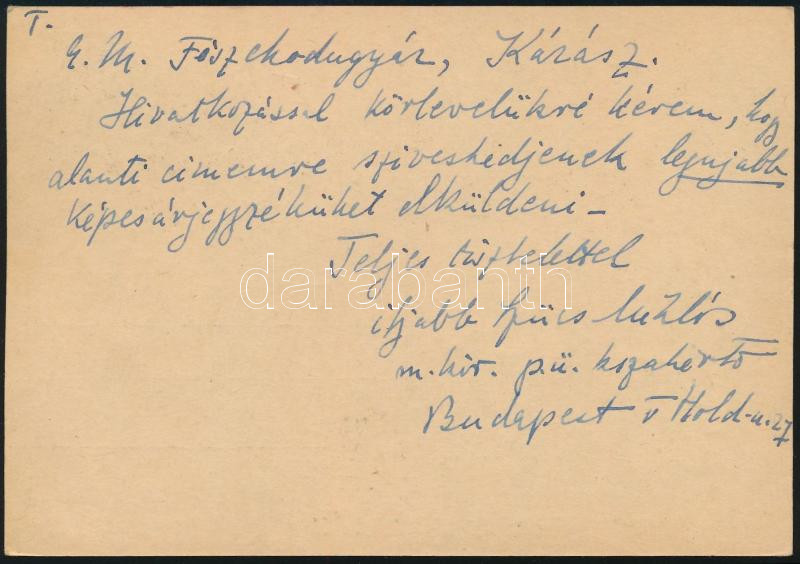 T.
E. M. Fészekodugyár, Kárász.
Hivatkozással körlevelükre kérem, hogy
alanti cimemre sziveskedjenek legujabb
képesárjegyzéküket elküldeni –
Teljes tisztelettel
darabanth
ifjabb Szücs Miklós
m. kir. p.ü.
Budapest V Hold-u. 27